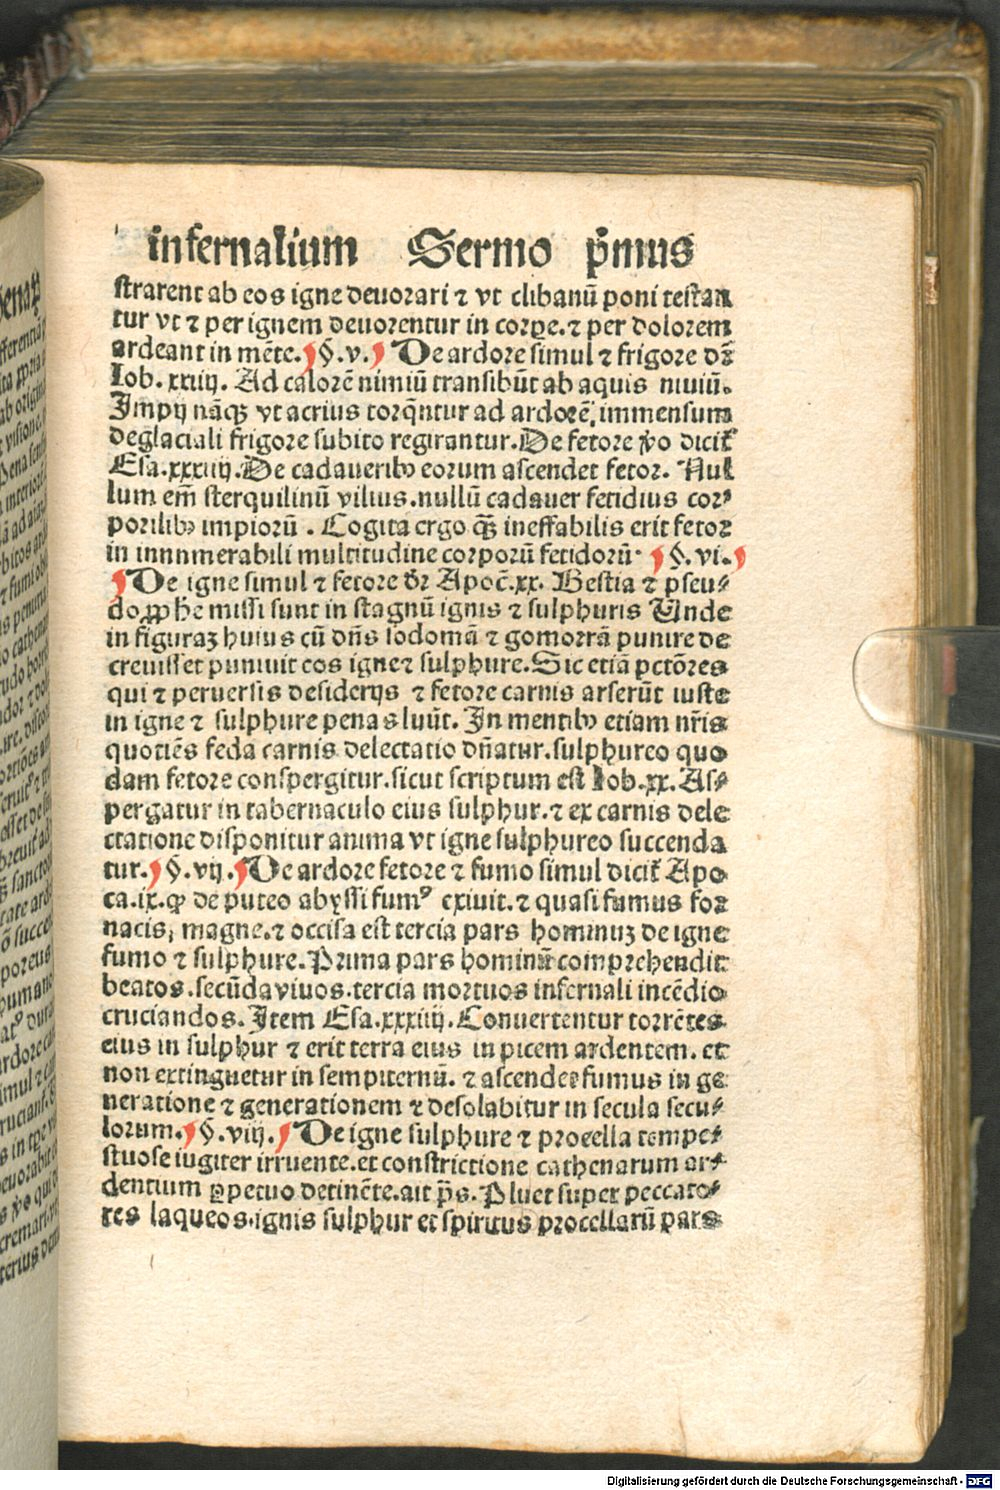 infernalium Sermo p̄mus
strarent ab eos igne deuorari ⁊ vt clibanū poni testan
tur vt ⁊ per ignem deuorentur in corpe. ⁊ per dolorem
ardeant in mēte. §. v. De ardore simul ⁊ frigore dr̄
Iob. xxiiij. Ad calorē nimiū transibūt ab aquis niuiū.
Impij nāqꝫ vt acrius torqn̄tur ad ardorē immensum
deglaciali frigore subito regirantur. De fetore ꝟo dicit̄
Esa. xxxiiij. De cadaueribꝰ eorum ascendet fetor. Nul
lum em̄ sterquilinū vilius. nullū cadauer fetidius cor⸗
poribꝰ impiorū. Cogita ergo qꝫ̄ ineffabilis erit fetor
in innnmerabili multitudine corporū fetidorū. §. vi.
De igne simul ⁊ fetore dr̄ Apoc̄. xx. Bestia ⁊ pseu⸗
do ꝓphe missi sunt in stagnū ignis ⁊ sulphuris Unde
in figuraꝫ huius cū dn̄s sodomā ⁊ gomorrā punire de
creuisset puniuit eos igne⁊ sulphure. Sic etiā pctōres
qui ⁊ peruersis desiderijs ⁊ fetore carnis arserūt iuste
in igne ⁊ sulphure penas luūt. In mentibꝰ etiam nr̄is
quotiēs feda carnis delectatio dn̄atur. sulphureo quo
dam fetore conspergitur. sicut scriptum est Iob. xx. As⸗
pergatur in tabernaculo eius sulphur. ⁊ ex carnis dele
ctatione disponitur anima vt igne sulphureo succenda
tur. §. vij. De ardore fetore ⁊ fumo simul dicit̄ Apo
ca. ix. ꝙ de puteo abyssi fumꝰ exiuit. ⁊ quasi fumus for
nacis, magne. ⁊ occisa est tercia pars hominuꝫ de igne
fumo ⁊ sulphure. Prima pars hominū comprehendit
beatos. secūda viuos. tercia mortuos infernali incēdio
cruciandos. Item Esa. xxxiiij. Conuertentur torrētes
eius in sulphur ⁊ erit terra eius in picem ardentem. et
non extinguetur in sempiternū. ⁊ ascendet fumus in ge
neratione ⁊ generationem ⁊ desolabitur in secula secu⸗
lorum. §. viij. De igne sulphure ⁊ procella tempe⸗
stuose iugiter irruente. et constrictione cathenarum ar⸗
dentium ꝑpetuo detinēte. ait p̄s. Pluet super peccato⸗
res laqueos. ignis sulphur et spiritus procellarū pars
Digitalisierung gefördert durch die Deutsche Forschungsgemeinschaft - DFG